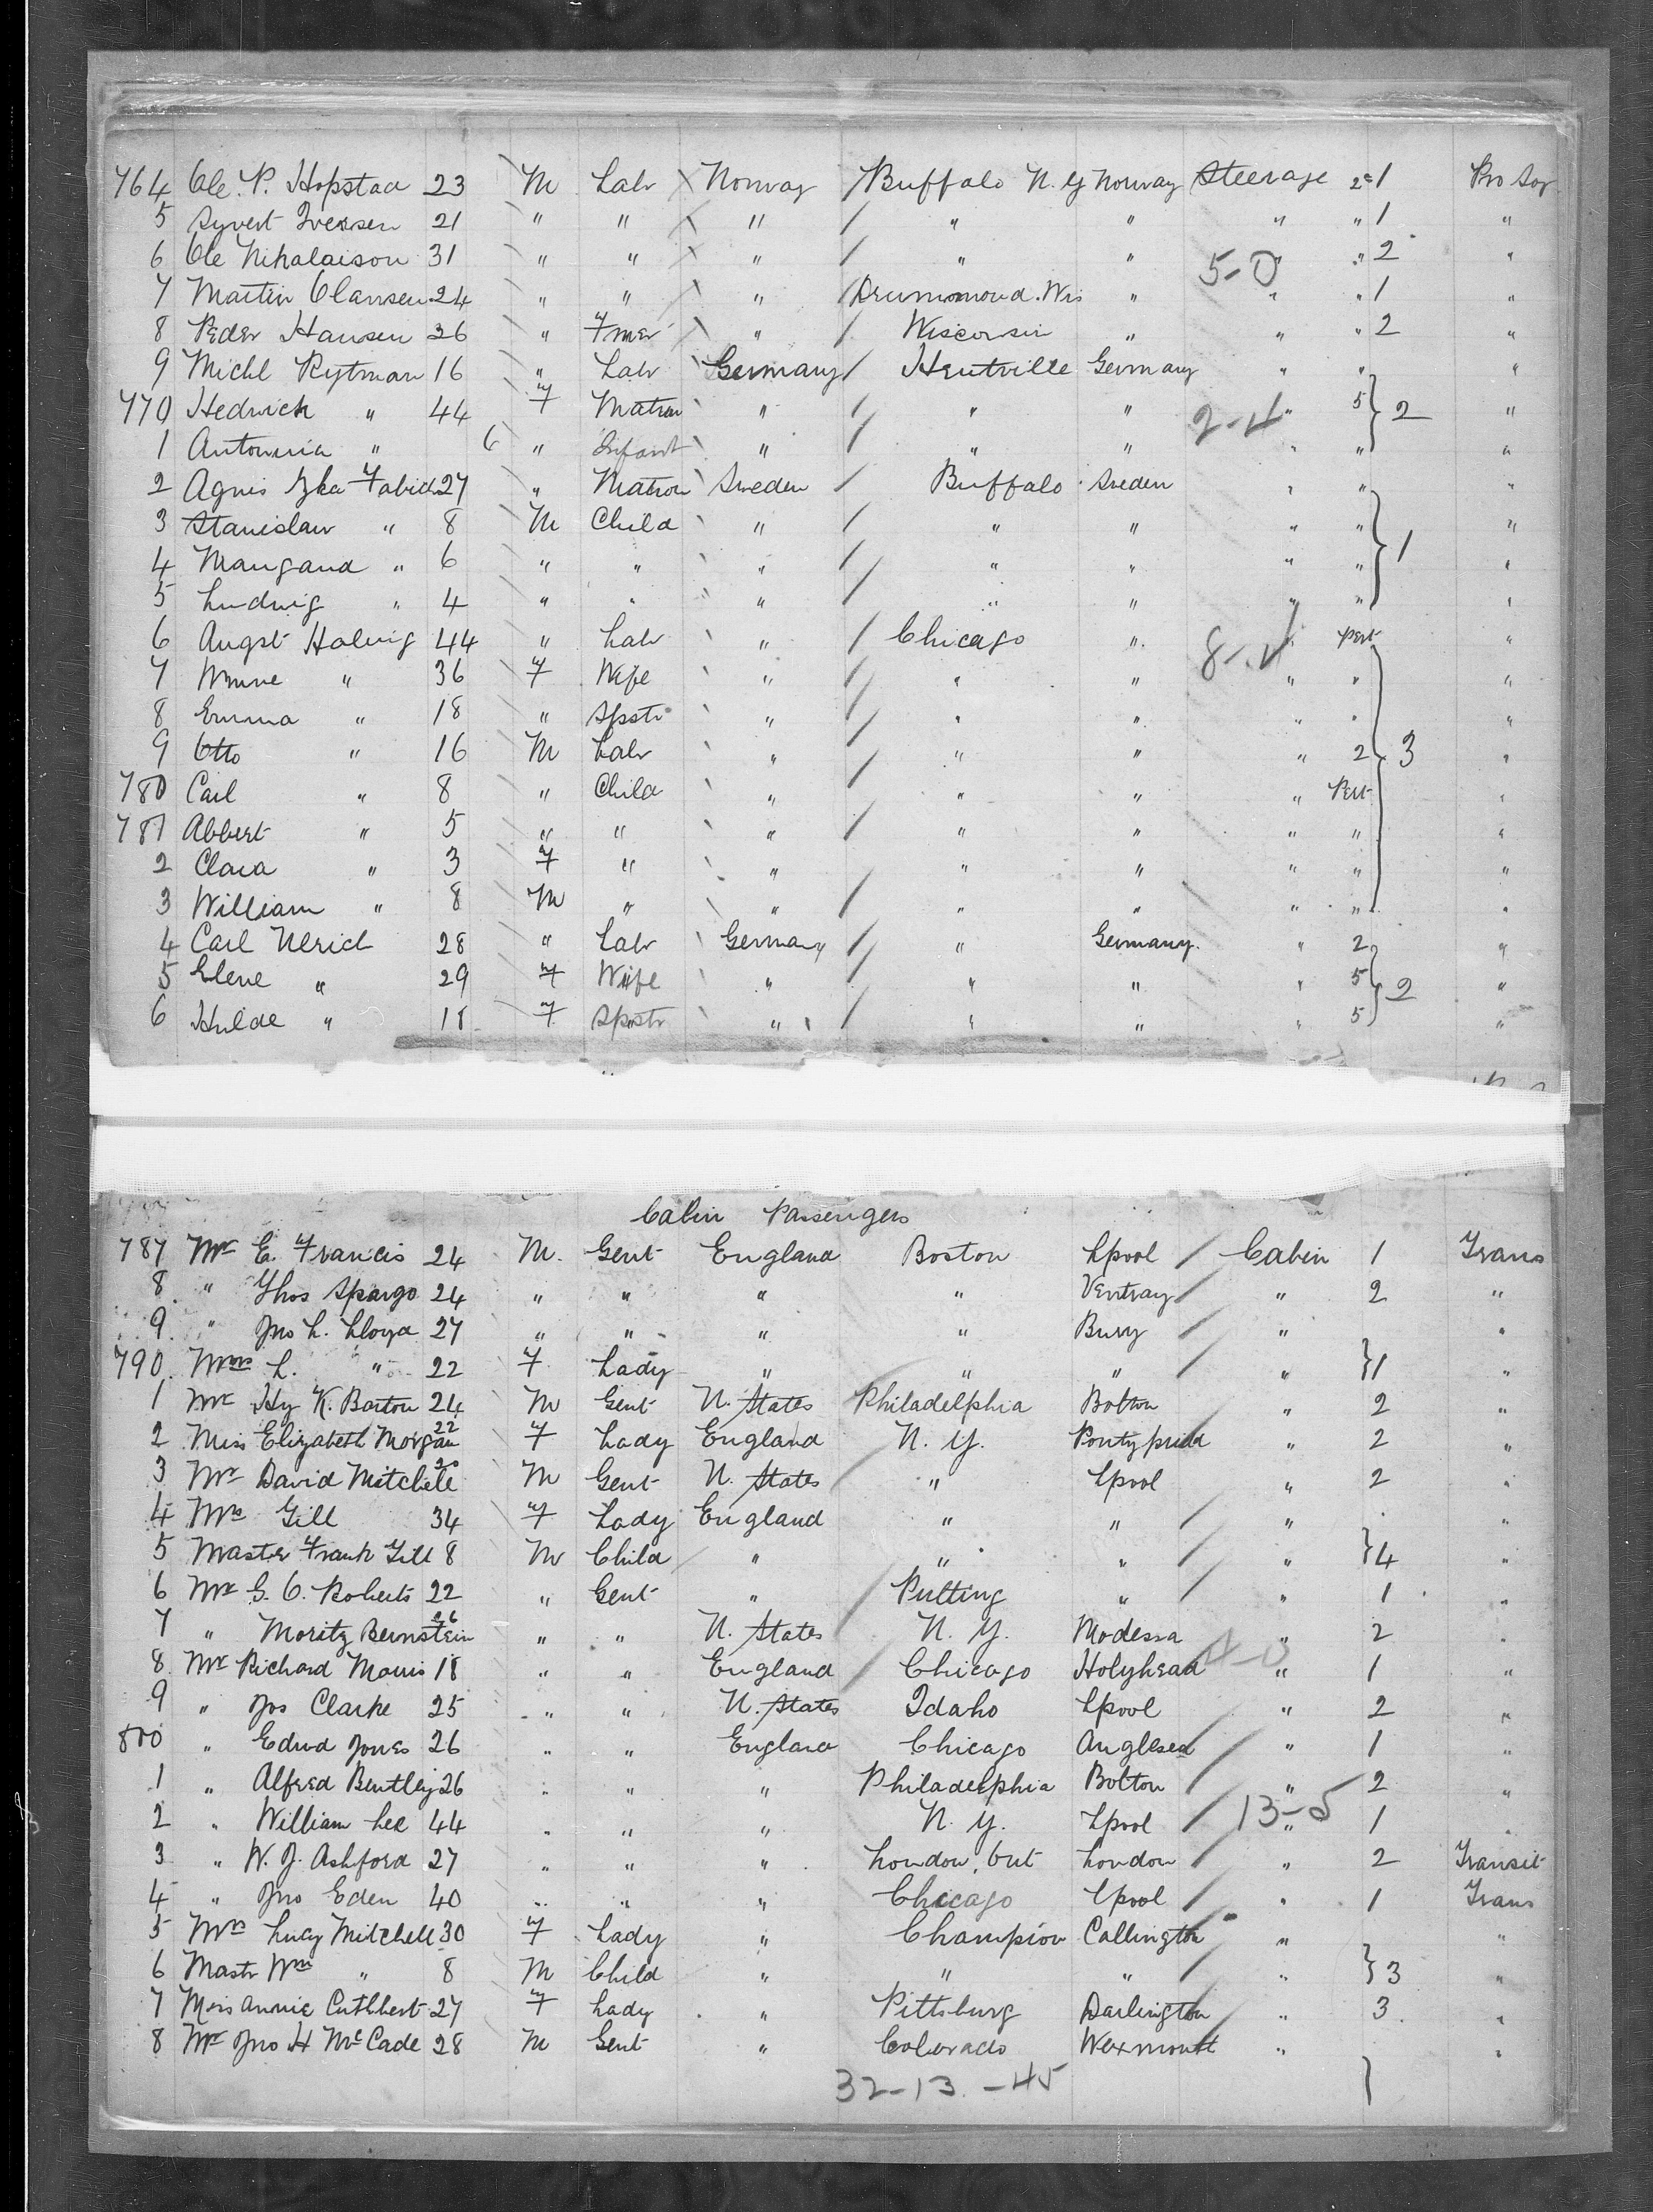 764 Ole P. Hopstad 23 M Labr Norway Buffalo N. Y Norway Steerage 2 1 Pro Soj
5 Syvert Iversen 21 " " " " " " " 1 "
6 Ole Nikolaison 31 " " " " " " " 2 "
5-0
7 Martin Clansen 24 " " " Drummond. Wis " " " 1 "
8 Peder Hansen 36 " Fmer " Wisconsin " " " 2 "
9 Michl Rytman 16 " Labr Germany Hentville Germany " " "
770 Hedwick " 44 F Matron " " " " 5 } 2 "
2-4
1 Antonnia " 6 " Infant " " " " " "
2 Agnis 27 " Matron Sweden Buffalo Sweden " " "
3 Stanislaw " 8 M Child " " " " " } 1 "
4 Mangana " 6 " " " " " " " "
5 Ludwig " 4 " " " " " " " "
6 Augst Halwig 44 " Labr " Chicago " " "
7 Minne " 36 F Wife " " " " " "
8 Emma " 18 " Spstr " " " " " "
9 Otto " 16 M Labr " " " " 2 } 3 "
780 Carl " 8 " Child " " " " "
781 Abbert " 5 " " " " " " " "
2 Clara " 3 F " " " " " " "
3 William " 8 M " " " " " " "
4 Carl Ulrich 28 " Labr Germany " Germany. " 2 "
5 Elene " 29 F Wife " " " " 5 } 2 "
6 Hulde " 18 F Spstr " " " " 5 "
Cabin Passengers
787 Mr E. Francis 24 M. Gent England Boston Lpool Cabin 1 Trans
8 " Thos Spargo 24 " " " " Ventray " 2 "
9 " Jno L. Lloyd 27 " " " " Bury " "
790 Mrs L. " 22 F Lady " " " " } 1 "
1 Mr Hy K. Barton 24 M Gent U. States Philadelphia Bolton " 2 "
2 Miss Elizabeth Morgan 22 F Lady England N. Y. Pontypridd " 2 "
3 Mr David Mitchell 20 M Gent U. States " Lpool " 2 "
4 Mrs Gill 34 F Lady England " " " "
5 Master Frank Gill 8 M Child " " " " } 4 "
6 Mr G. C. Roberts 22 " Gent " Pulting " " 1 "
7 " Moritz Bernstein 26 " " U. States N. Y. Modessa " 2 "
8 Mr Richard Morris 18 " " England Chicago Holyhead " 1 "
9 " Jos Clarke 25 " " U. States Idaho Lpool " 2 "
800 " Edwd Jones 26 " " England Chicago Anglesea " 1 "
1 " Alfred Bentley 26 " " " Philadelphia Bolton " 2 "
2 " William Lee 44 " " " N. Y. Lpool " 1 "
13-5
3 " W. J. Ashford 27 " " " London, Ont London " 2 Transit
4 " Jno Eden 40 " " " Chicago Lpool " 1 Trans
5 Mrs Lucy Mitchell 30 F Lady " Champion Callington " "
6 Mastr Wm " 8 M Child " " " " } 3 "
7 Miss Annie Cuthbert 27 F Lady " Pittsburg Darlington " 3 "
8 Mr Jno H McCade 28 M Gent " Colorado Wexmouth " "
32-13-45